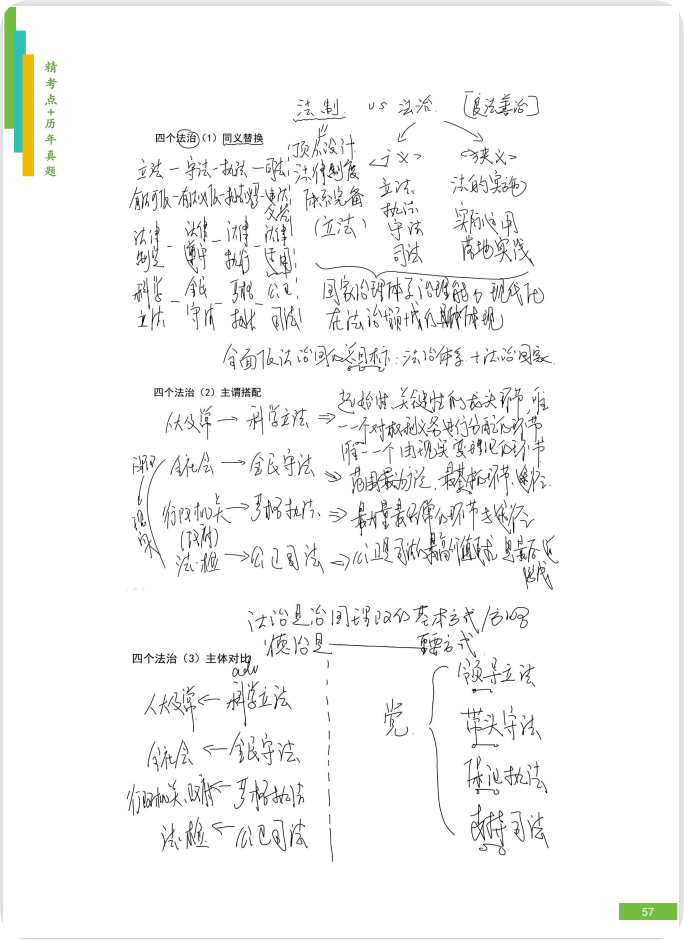 精考点+历年真题
法制 vs 法治 [良法善治]
四个法治（1）同义替换
顶层设计
<广义> <狭义>
立法-守法-执法-司法
法律制度
立法 法的实施
有法可依-有法必依-执法必严-违法必究
体系完备
执法
(立法) 守法 实际运用
法律制定-法律遵守-法律执行-法律适用
司法 落地实践
科学立法-全民守法-严格执法-公正司法
国家治理体系治理能力现代化
在法治领域的集中体现
全面依法治国的总目标:法治体系+法治国家
四个法治（2）主谓搭配
人大及常→科学立法⇒起始性、关键性的
唯一一个对权利义务进行分配的环节
全社会→全民守法⇒唯一一个由现实变
范围最为广泛、最基本的环节、途径
行政机关→严格执法⇒最大量最经常的环节与途径
(政府)
法、检→公正司法⇒公正是司法的最高价值追求
法治是治国理政的基本方式/方略
德治是——重要方式
四个法治（3）主体对比
adv
人大及常←科学立法
全社会←全民守法
行政机关、政府←严格执法
法、检←公正司法
党
领导立法
带头守法
保证执法
支持司法
57